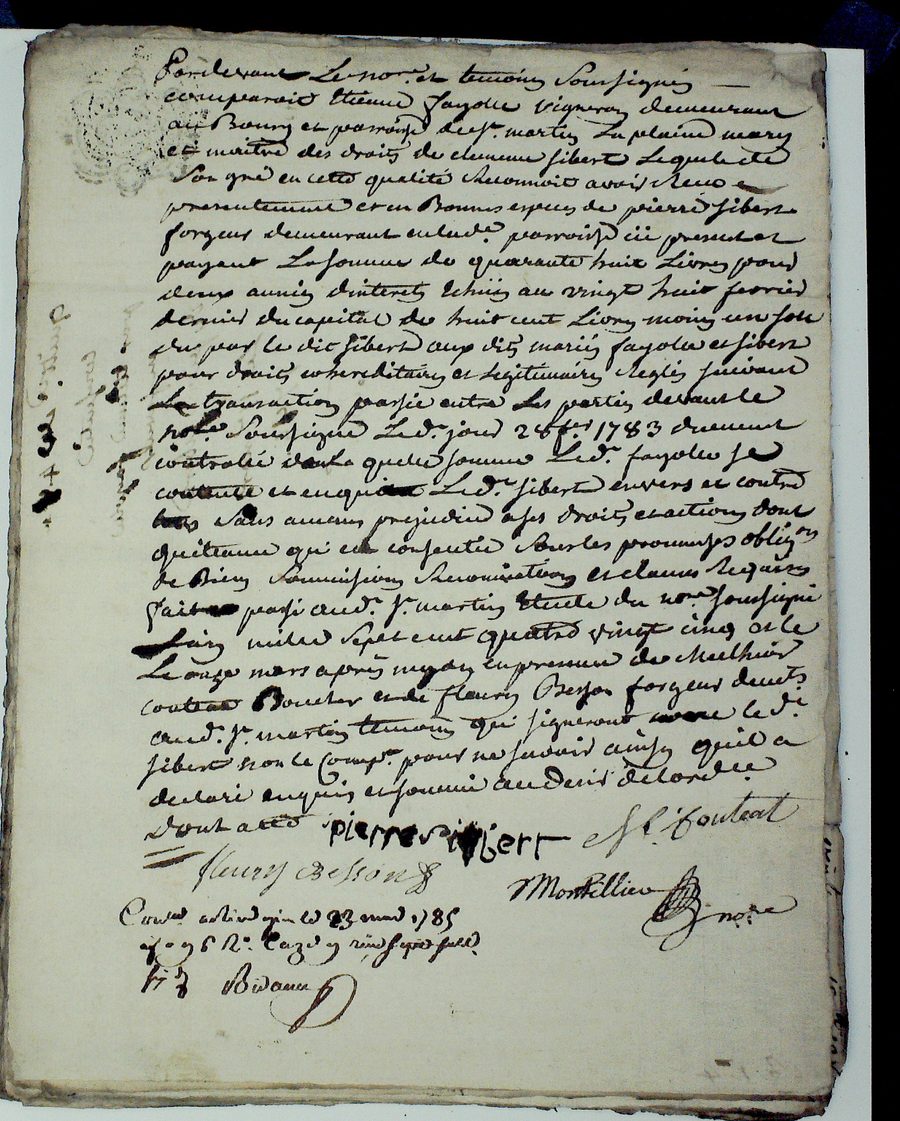 Pardevant Le nore et temoins Soussignés
comparoit Etienne fayolle vigneron demeurant
au Bourg et parroisse de St. martin La plaine mary
et maitre des droits de clemence sibert Lequel de
Son gré en cette qualité Reconnoit avoir Receu
presentement et en Bonnes especes de pierre sibert
forgeur demeurant en lad. parroisse ici present et
payant La somme de quarante huit Livres pour
deux années d'interets Echües au vingt huit fevrier
dernier du capital de huit cent Livres moins un sol
du par le dit sibert aux dits mariés fayolle et sibert
pour droits cohereditaires et Legitimaires Reglés suivant
La transaction passée entre Les parties devant le
nore. Soussigné Led. jour 28 fer. 1783 duement
controlée de La quelle somme Led. fayolle se
contente et en quitte Led. sibert envers et contre
tous Sans aucun prejudice a ses droits et actions dont
quittance qui est consentie Sous les promesses oblig.ons
de Biens Soumissions Renonciations et clauses Requises
fait passé aud. St. martin Etude du nore. soussigné
L'an mille sept cent quatre vingt cinq et le
Le onze mars après midy en presence de Melhior
couteau Boucher et de fleury Besson forgeur demts.
aud. St. martin temoins qui signeront avec le d.
sibert non le Comp.t pour ne savoir ainsy qu'il a
declaré enquis et sommé au desir de l'ord.ce
Dont acte
pierre sibert
fleury Besson
Montellier nore
le 23 mars 1785